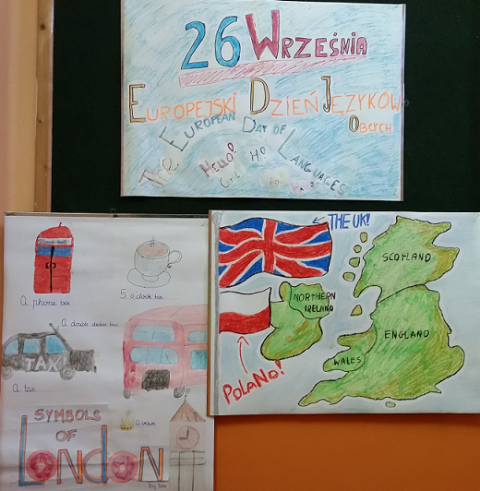 26 WRZEŚNIA
EUROPEJSKI DZIEŃ JĘZYKÓW
OBCYCH
THE EUROPEAN DAY OF LANGUAGES
HELLO!
A phone box
5 o'clock tea
A double decker bus
TAXI
A taxi
SYMBOLS
OF
LONDON
Big Ben
THE UK!
SCOTLAND
NORTHERN
IRELAND
ENGLAND
WALES
POLAND!